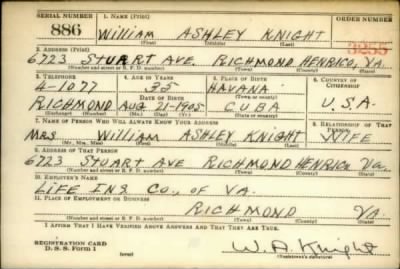 SERIAL NUMBER 1. NAME (Print) ORDER NUMBER
886 William ASHLEY KNIGHT 3255
(First) (Middle) (Last)
2. ADDRESS (Print)
6723 STUART AVE. RICHMOND HENRICO, VA.
(Number and street or R. F. D. number) (Town) (County) (State)
3. TELEPHONE 4. AGE IN YEARS 5. PLACE OF BIRTH 6. COUNTRY OF CITIZENSHIP
4-1077 35 HAVANA
DATE OF BIRTH (Town or county)
RICHMOND AUG 21-1905 CUBA U.S.A.
(Exchange) (Number) (Mo.) (Day) (Yr.) (State or country)
7. NAME OF PERSON WHO WILL ALWAYS KNOW YOUR ADDRESS 8. RELATIONSHIP OF THAT PERSON
MRS William ASHLEY KNIGHT WIFE
(Mr., Mrs., Miss) (First) (Middle) (Last)
9. ADDRESS OF THAT PERSON
6723 STUART AVE RICHMOND HENRICO Va.
(Number and street or R. F. D. number) (Town) (County) (State)
10. EMPLOYER'S NAME
LIFE INS. CO., OF VA.
11. PLACE OF EMPLOYMENT OR BUSINESS
RICHMOND VA.
(Number and street or R. F. D. number) (Town) (County) (State)
I AFFIRM THAT I HAVE VERIFIED ABOVE ANSWERS AND THAT THEY ARE TRUE.
REGISTRATION CARD W. A. Knight
D. S. S. Form 1 (over) (Registrant's signature)